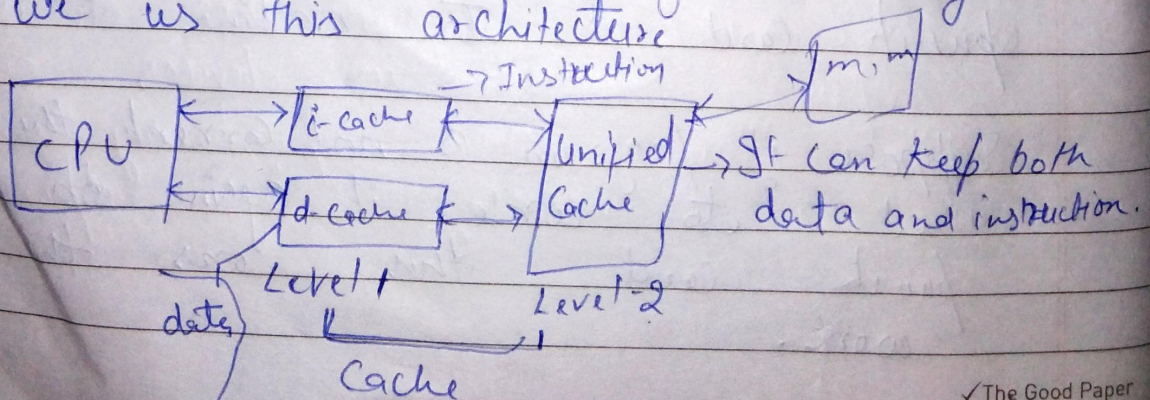 we us this architecture
→ Instruction
m.m
CPU
i-cache
Unified
Cache
→ It can keep both
data and instruction.
d-cache
Level 1
Level-2
data
Cache
✓The Good Paper